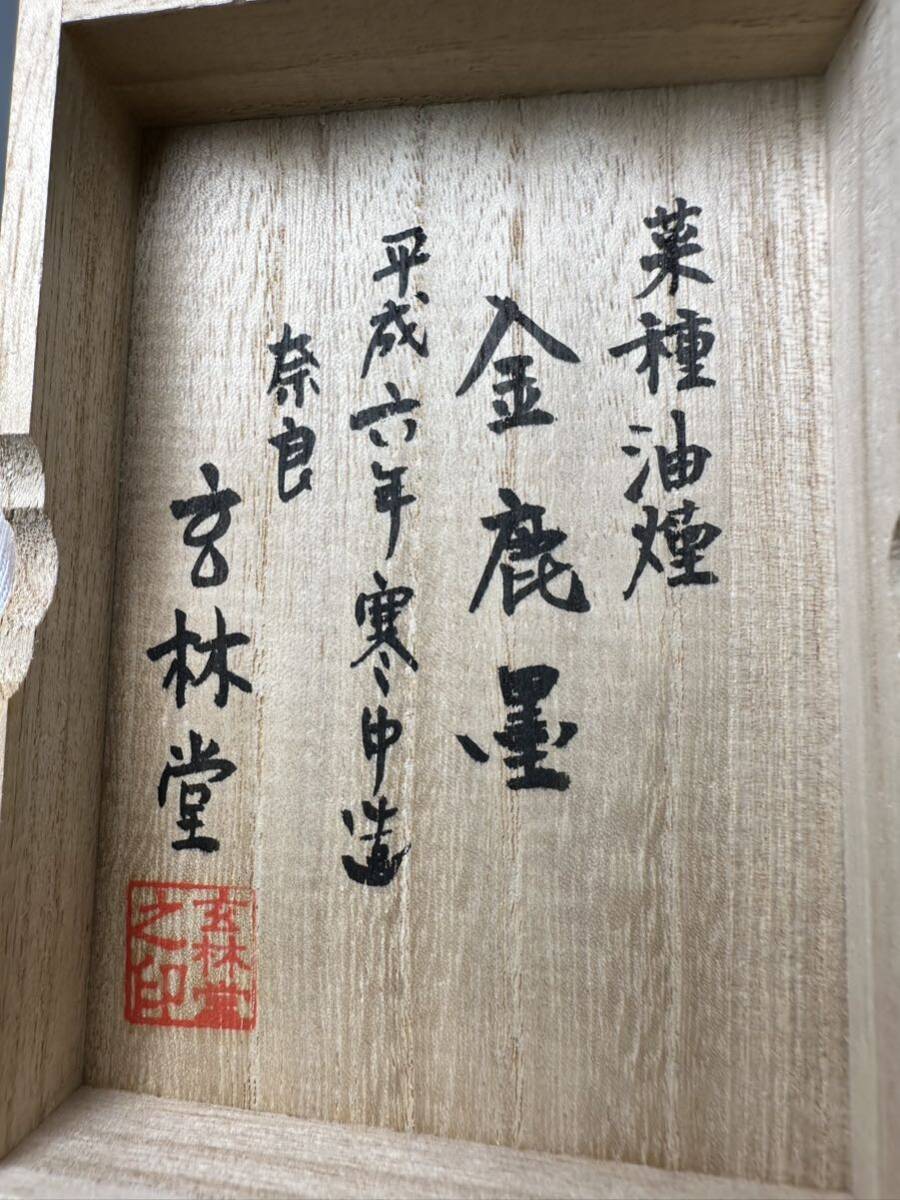 菜種油煙
金鹿墨
平成六年寒中造
奈良
玄林堂
玄林堂
之印